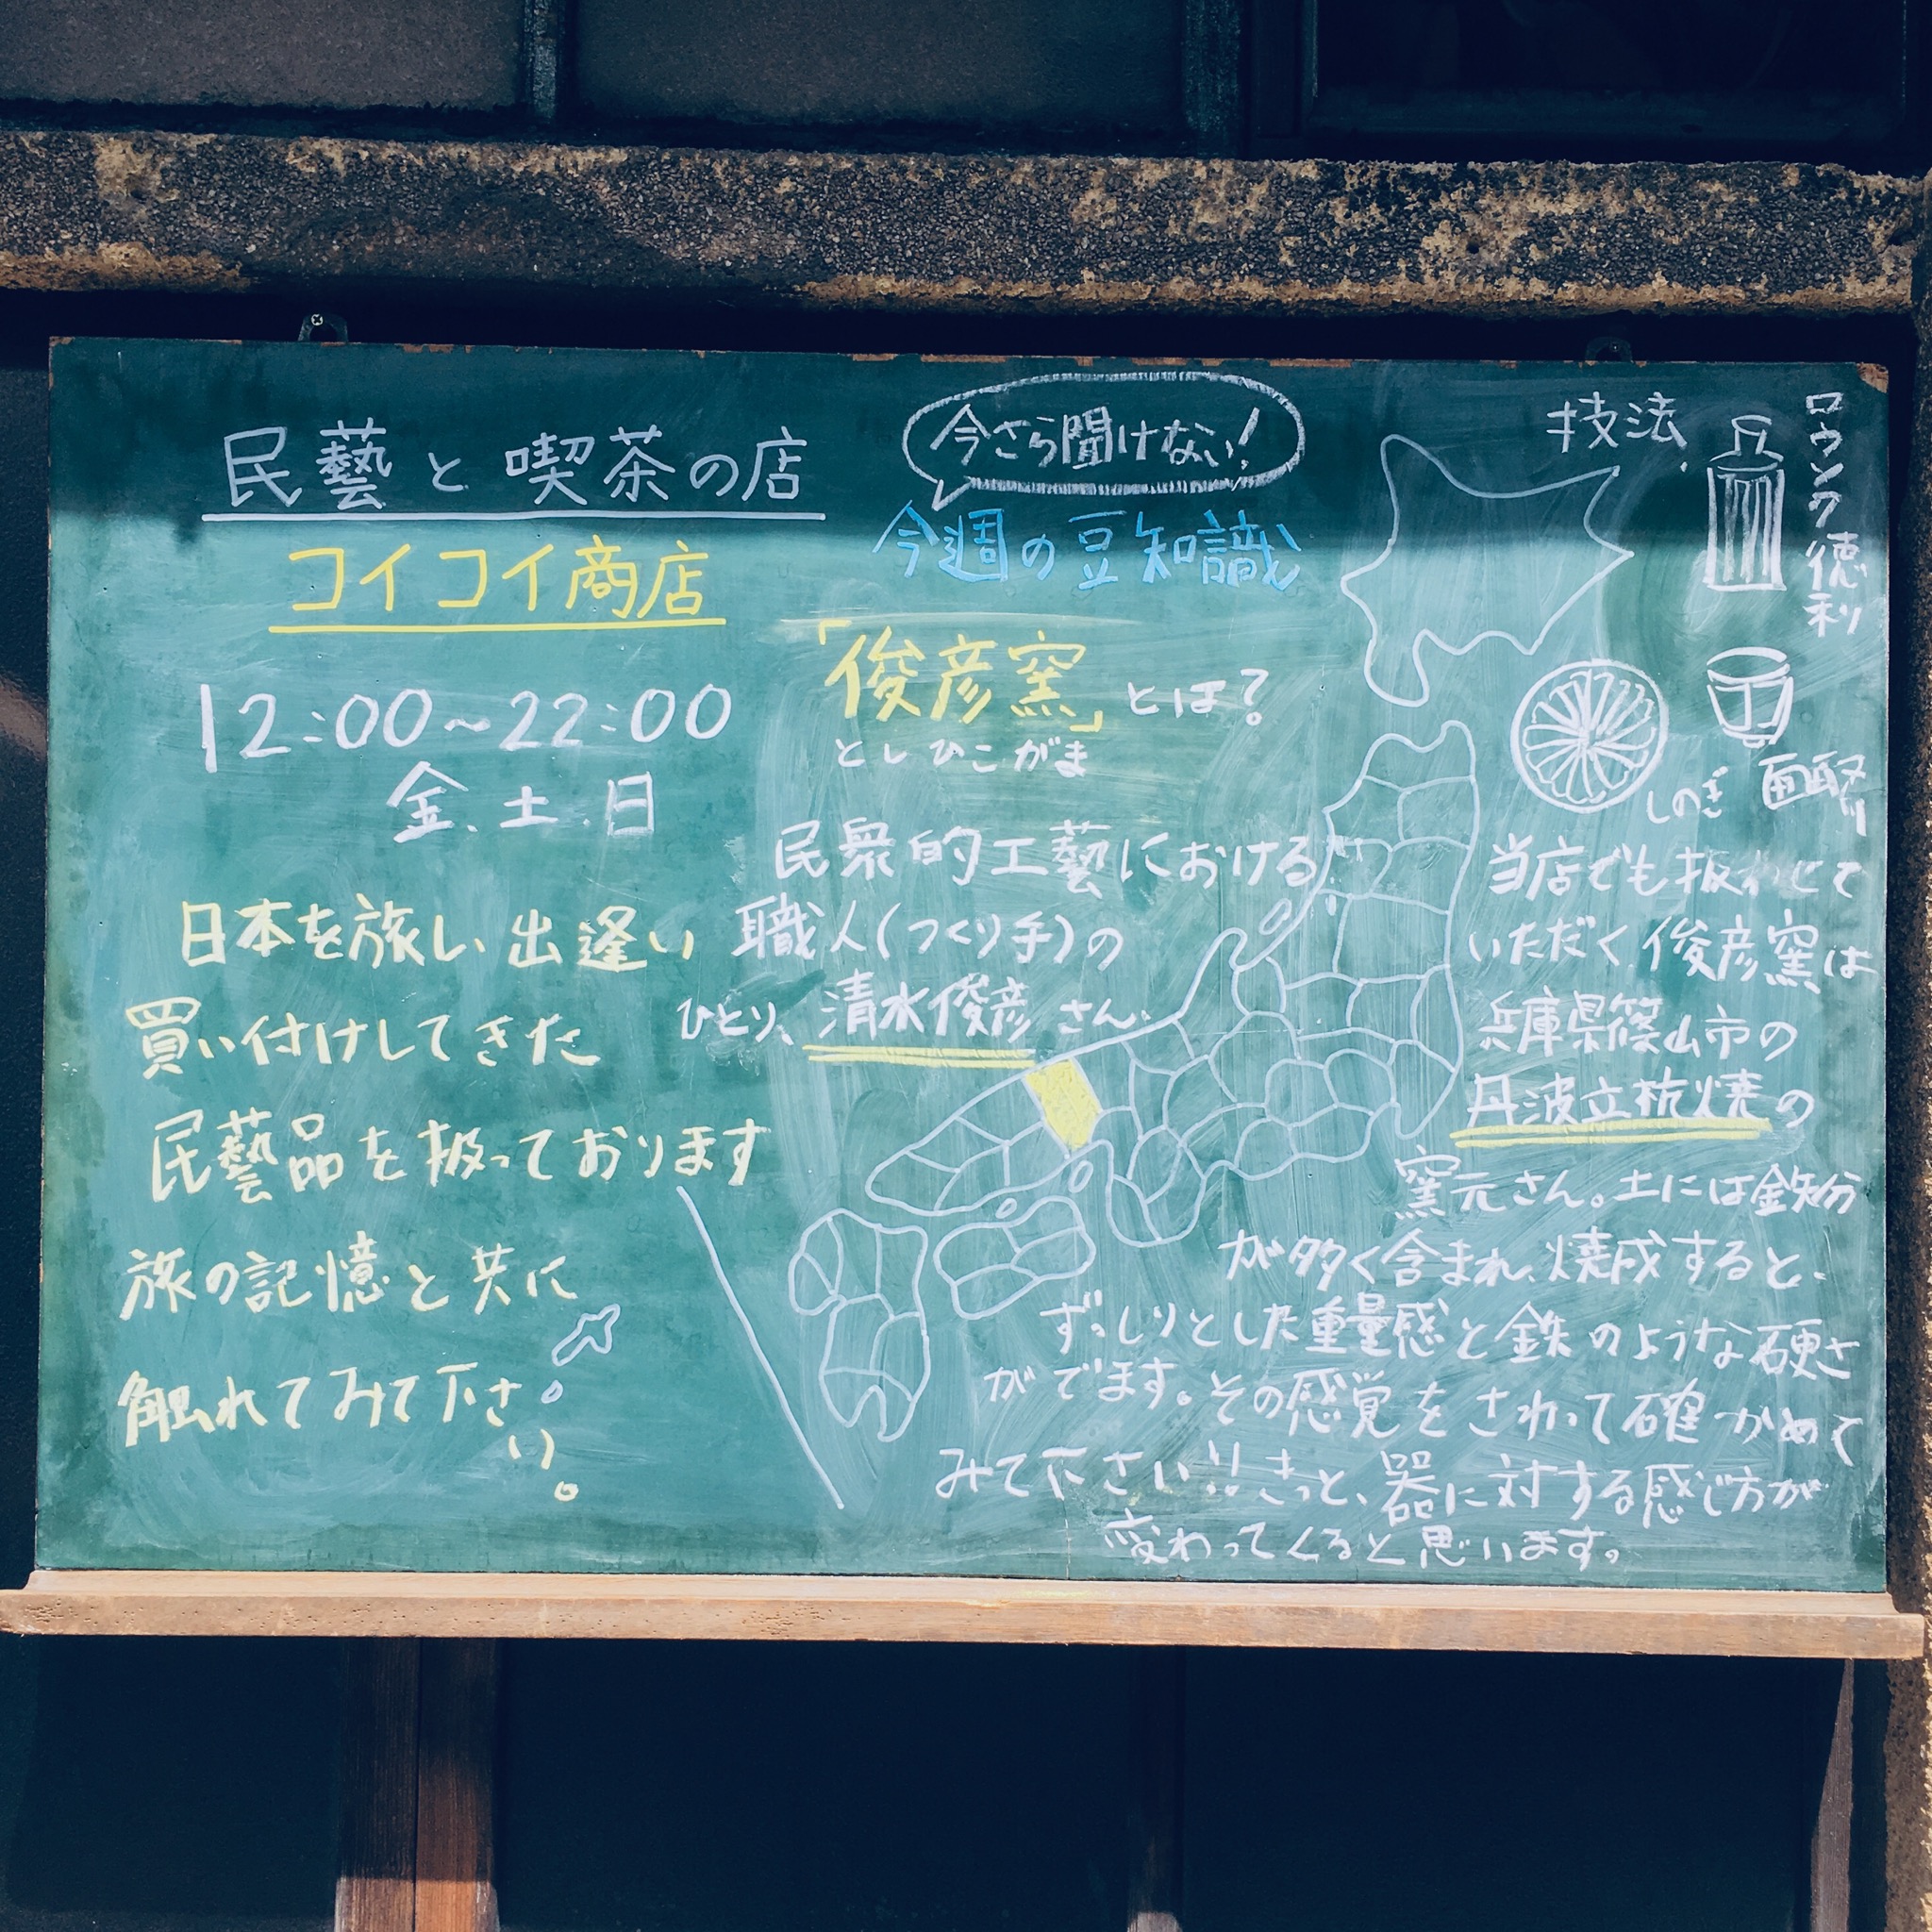 民藝と喫茶の店
コイコイ商店
12:00~22:00
金.土.日
日本を旅し出逢い
買い付けしてきた
民藝品を扱っております
旅の記憶と共に
触れてみて下さ
い。
今さら聞けない!
今週の豆知識
「俊彦窯」とは?
としひこがま
民衆的工藝における
職人(つくり手)の
ひとり、清水俊彦さん、
技法、
ロウソク徳利
しのぎ
面取り
当店でも扱わせて
いただく俊彦窯は
兵庫県篠山市の
丹波立杭焼の
窯元さん。土には鉄分
が多く含まれ、焼成すると、
ずっしりとした重量感と鉄のような硬さ
がでます。その感覚をさわって確かめて
みて下さい!!きっと、器に対する感じ方が
変わってくると思います。